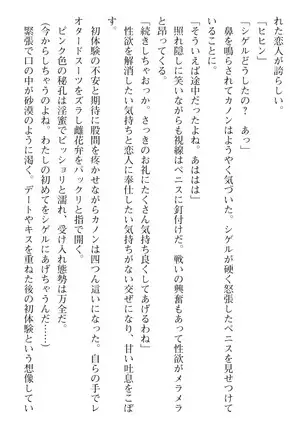 れた恋人が誇らしい。
「ヒヒン」
「シゲルどうしたの？　あっ」
鼻を鳴らされてカノンはようやく気づいた。シゲルが硬く緊張したペニスを見せつけて
いることに。
「そういえば途中だったよね。あははは」
照れ隠しに笑いながらも視線はペニスに釘付けだ。戦いの興奮もあって性欲がメラメラ
と昂ってくる。
「続きしちゃおっか。さっきのお礼にたくさん気持ち良くしてあげるわね」
性欲を解消したい気持ちと恋人に奉仕したい気持ちが交ぜになり、甘い吐息をこぼ
初体験の不安と期待に股間を疼かせながらカノンは四つん這いになった。自らの手でレ
オタードスーツをズラし雌花弁をパックリと指で開く。
ピンク色の秘孔は淫蜜でビッショリと濡れ、受け入れ態勢は万全だ。
（今からしちゃうのよね。わたしの初めてをシゲルにあげちゃうんだ……）
緊張で口の中が砂漠のように渇く。デートやキスを重ねた後の初体験という想像してい